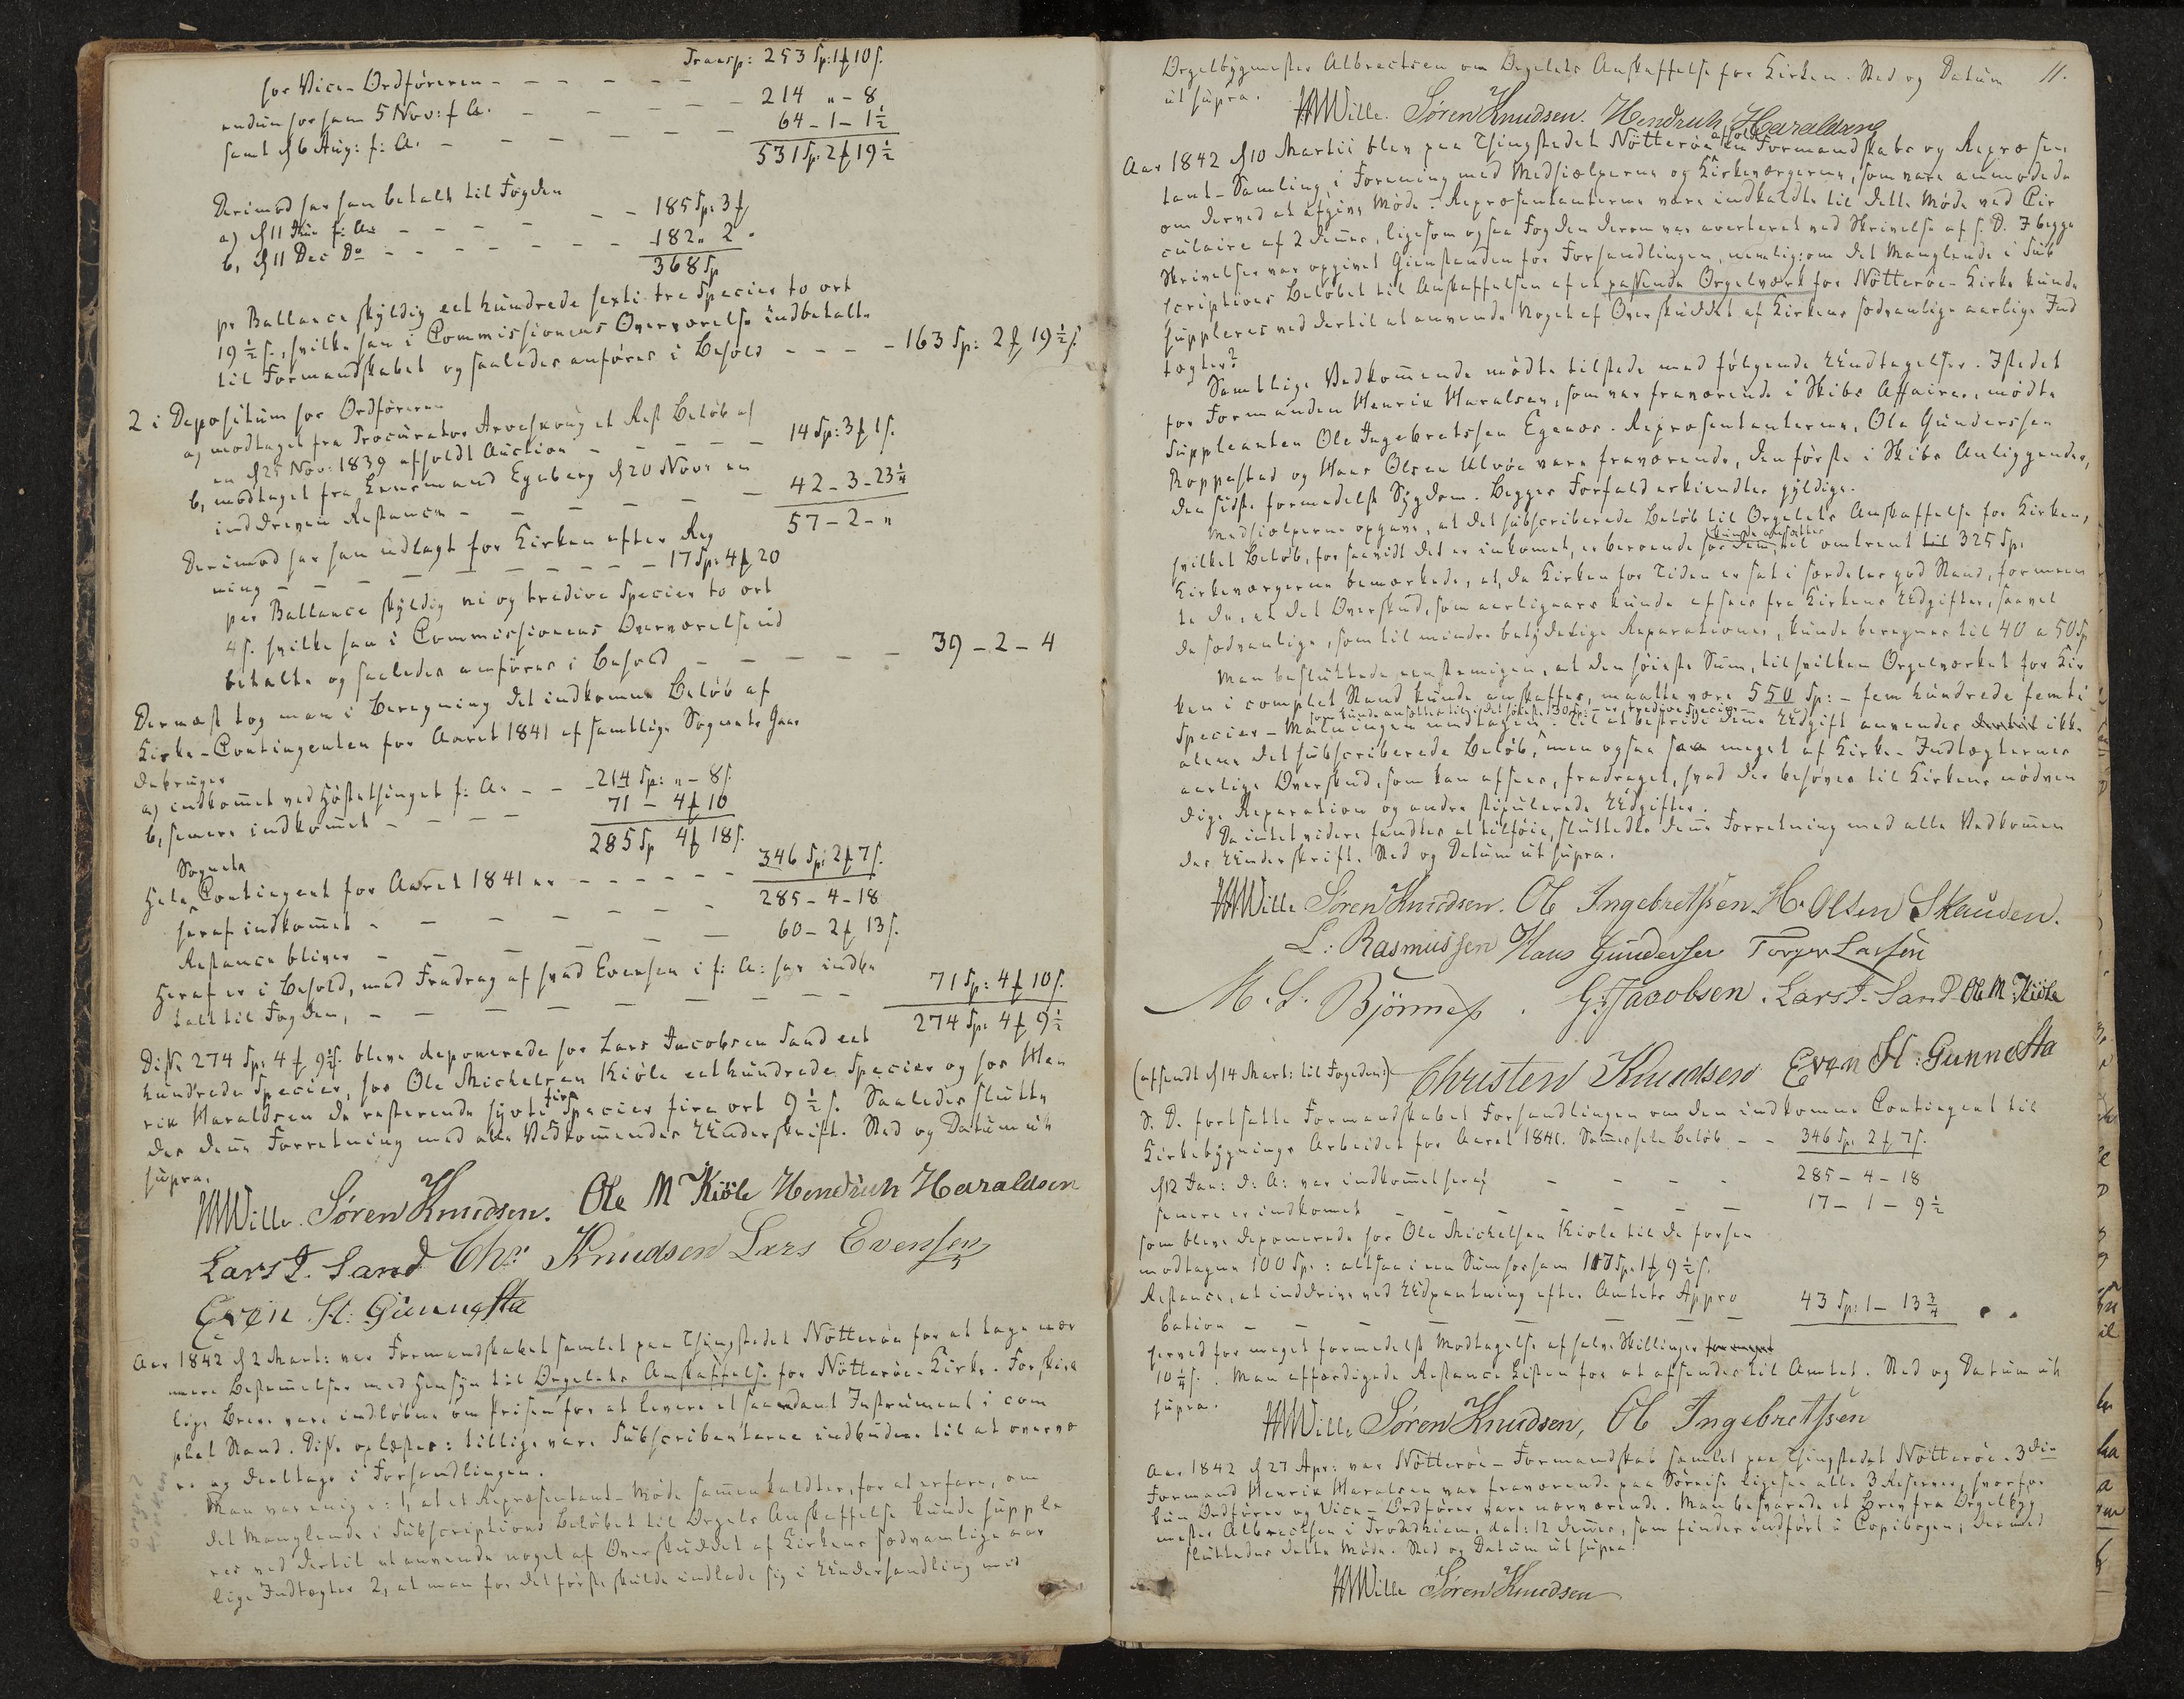 Transp: 253 Sp: 1 ƒ 10 s.
hos Vice-Ordföreren - - - - - -
endnu hos ham 5 Nov: f. A. - - - - 214 „ - 8
samt d 6 Aug: f: A. - - - - - 64 - 1 - 1½
531 Sp: 2 ƒ 19½
Derimod har han betalt til Fogden
a) d 11 f: A: - - - - - 185 Sp: 3 ƒ
b, d 11 Dec Do - - - - - 182 „ 2 „
368 Sp
pr Ballance skÿldig eet hundrede sexti tre Species to ort
19½ s., hvilke han i Commissionens Overværelse indbetalte
til Formandskabet og saaledes anföres i Behold - - - - 163 Sp: 2 ƒ 19½ s.
2 i Depositum hos Ordföreren
a, modtaget fra Procurator Arveskoug et Rest Belöb af
en d 25 Nov: 1839 afholdt Auction - - - - 14 Sp: 3 ƒ 1 s.
b, modtaget fra Lensmand Egeberg d 20 Novr en
inddreven Restance - - - - - 42 - 3 - 23¼
57 - 2 - „
Derimod har han udlagt for Kirken efter Reg
ning - - - - - - - - 17 Sp: 4 ƒ 20
per Ballance skÿldig ni og tredive Species to ort
4 s. hvilke han i Commissionens Overværelse ud
betalte og saaledes anföres i Behold - - - - - 39 - 2 - 4
Dernæst tog man i Beregning det indkomne Belöb af
Kirke-Contingenten for Aaret 1841 af samtlige Sognets Gaar
debruger
a, indkom̄et ved Höstethinget f: A: - - 214 Sp: „ - 8 s.
b, senere indkom̄et - - - - 71 - 4 ƒ 10
285 Sp 4 ƒ 18 s.
Sognets
Hele Contingent for Aaret 1841 er - - - - - - 346 Sp: 2 ƒ 7 s.
heraf indkom̄et - - - - - - 285 - 4 - 18
Restance bliver - - - - - - 60 - 2 ƒ 13 s.
Heraf er i Behold, med Fradrag af hvad Evensen i f: A: har indbe
talt til Fogden, - - - - - - - - 71 Sp: 4 ƒ 10 s.
274 Sp: 4 ƒ 9½
Disse 274 Sp: 4 ƒ 9½ s. bleve deponerede hos Lars Jacobsen Sand eet
hundrede Species, hos Ole Michelsen Kiöle eethundrede Species og hos Hen
rik Haraldsen de resterende sÿvti fire Species fire ort 9½ s. Saaledes slutte
des den̄e Forretning med alle Vedkom̄endes Underskrift. Sted og Datum ut
supra.
HMWille. Søren Knudsen. Ole M Kiöle Hendrich Haraldsen
Lars J. Sand Chr Knudsen Lars Evensen
Even H: Gunnesta
Aar 1842 d 2 Mart: var Formandskabet samlet paa Thingstedet Nötteröe for at tage nær
mere Bestem̄elser med Hensÿn til Orgelets Anskaffelse for Nötteröe-Kirke. Forskiel
lige Breve vare indlöbne om Prisen for at levere et saadant Instrument i com
plet Stand. Disse oplæstes: tillige vare Subscribenterne indbudne til at overvæ
re og deeltage i Forhandlingen.
Man var enig i: 1, at et Repræsentant-Möde sam̄enkaldtes, for at erfare, om
det Manglende i Subscriptions Belöbet til Orgels Anskaffelse kunde supple
res ved dertil at anvende noget af Overskuddet af Kirkens sædvanlige aar
lige Indtægter 2, at man for det förste skulde indlade sig i Underhandling med
Orgelbÿgmester Albrectsen om Orgelets Anskaffelse for Kirken. Sted og Datum 11.
ut supra. HMWille. Søren Knudsen. Hendrich Haraldsen
Aar 1842 d 10 Martii blev paa Thingstedet Nötteröe afholdt en Formandskabs og Repræsen
tant-Samling, i Forening med Medhiælperne og Kirkeværgerne, som vare anmodede
om derved at afgive Möde. Repræsentanterne vare indkaldte til dette Möde ved Cir
culaire af 2 dennes, ligesom ogsaa Fogden derom var averteret ved Skrivelse af s. D. I begge
Skrivelser var opgivet Gienstanden for Forhandlingen, nemlig: om det Manglende i Sub
scriptions Belöbet til Anskaffelsen af et passende Orgelværk for Nötteröe-Kirke kunde
suppleres ved dertil at anvende Noget af Overskuddet af Kirkens sædvanlige aarlige Ind
tægter?
Samtlige Vedkom̄ende mödte tilstede med fölgende Undtagelser. Istedet
for Formanden Henrik Haralsen, som var fraværende i Skibs Affairer, mödte
Suppleanten Ole Ingebretssen Egenæs. Repræsentanterne, Ole Gunderssen
Roppestad og Hans Olsen Ulvöe vare fraværende, den förste i Skibs Anliggender,
den sidste formedelst Sÿgdom. Begges Forfald erkiendtes gÿldige.
Medhiælperne opgave, at det subscriberede Belöb til Orgelets Anskaffelse for Kirken,
hvilket Belöb, for saavidt det er inkomet, er beroende hos dem, kunde ansættes til omtrent til 325 Sp:
Kirkeværgerne bemærkede, at, da Kirken for Tiden er sat i særdeles god Stand, formeen
te de, at det Overskud, som aarligaars kunde ahfsees fra Kirkens Udgifter, saavel
de sædvanlige, som til mindre betÿdelige Reparationer, kunde beregnes til 40 a 50 Sp
Man besluttede eenstemmigen, at den höieste Sum, til hvilken Orgelværket for Kir
ken i complet Stand kunde anskaffes, maatte være 550 Sp: - fem hundrede femti
Species - Malningen undtagen, som kunde ansættes til i det höieste 30 Sp: - tredive Species -. Til at bestride den̄e Udgift anvendes dertil ikke
alene det subscriberede Belöb, men ogsaa saa meget af Kirke-Indtægternes
aarlige Overskud, som kan afsees, fradraget, hvad der behöves til Kirkens nödven
dige Reparation og andre stipulerede Udgifter.
Da intet videre fandtes at tilföie, sluttedes den̄e Forretning med alle Vedkom̄en
des Underskrift. Sted og Datum ut supra.
HMWille Søren Knudsen. Ole Ingebretssen H. Olsen Skauen.
L: Rasmussen Hans Gundersen Torger Larsen
M. S. Björnnes. G: Jacobsen. Lars J. Sand Ole M: Kiöle
(afsendt d 14 Mart: til Fogden:) Christen Knudsen Even H: Gunnesta
S. D. fortsatte Formandskabet Forhandlingen om den indkomne Contingent til
Kirkebÿgnings Arbeidet for Aaret 1841. Sam̄es hele Belöb - - 346 Sp: 2 ƒ 7 s.
d 12 Jan: d: A: var indkom̄et heraf - - - - 285 - 4 - 18
senere er indkomet - - - - - - 17 - 1 - 9½
som bleve deponerede hos Ole Michelsen Kiole til de forhen
modtagne 100 Sp: : altsaa i en Sum hos ham 117 Sp: 1 ƒ 9½ s.
Restance, at inddrive ved Udpantning efter Amtets Appro
bation - - - - - - - - 43 Sp: 1 - 13¾
herved for meget formedelst Modtagelse af halve Skillinger for meget
10¼ s. Man affærdigede Restance Listen for at afsendes til Amtet. Sted og Datum ut
supra.
HMWille Søren Knudsen, Ole Ingebretssen
Aar 1842 d 27 Apr: var Nötteröe-Formandskab samlet paa Thingstedet Nötteröe. 3die
Formand Henrik Haralsen var fraværende paa Söreise ligesaa alle 3 Reserver, hvorfor
kun Ordförer og Vice-Ordförer vare nærværende. Man besvarede et Brev fra Orgelbÿg
mester Albrectsen i Trodhiem, dat: 12 dennes, som findes indfört i Copibogen; dermed
sluttedes dette Möde. Sted og Datum ut supra.
HMWille Søren Knudsen